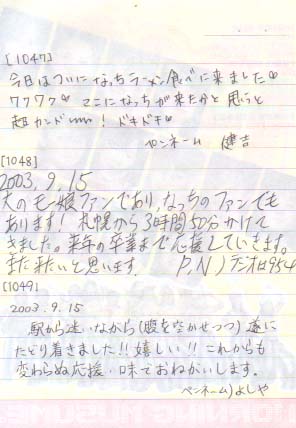 [1047]
今日はついになっちラーメン食べに来ました♡
ワクワク♡ ここになっちが来たかと思うと
超カンドー!ドキドキ♡
ペンネーム 健吉
[1048]
2003.9.15
大のモー娘ファンであり、なっちのファンでも
あります! 札幌から3時間50分かけて
きました。来年の卒業まで応援していきます。
また来たいと思います。 P.N)ラジオは954
[1049]
2003.9.15
駅から迷いながら(腹を空かせつつ)遂に
たどり着きました!!嬉しい!!これからも
変わらぬ応援・味でおねがいします。
ペンネーム)よしや
MORNING MUSUME